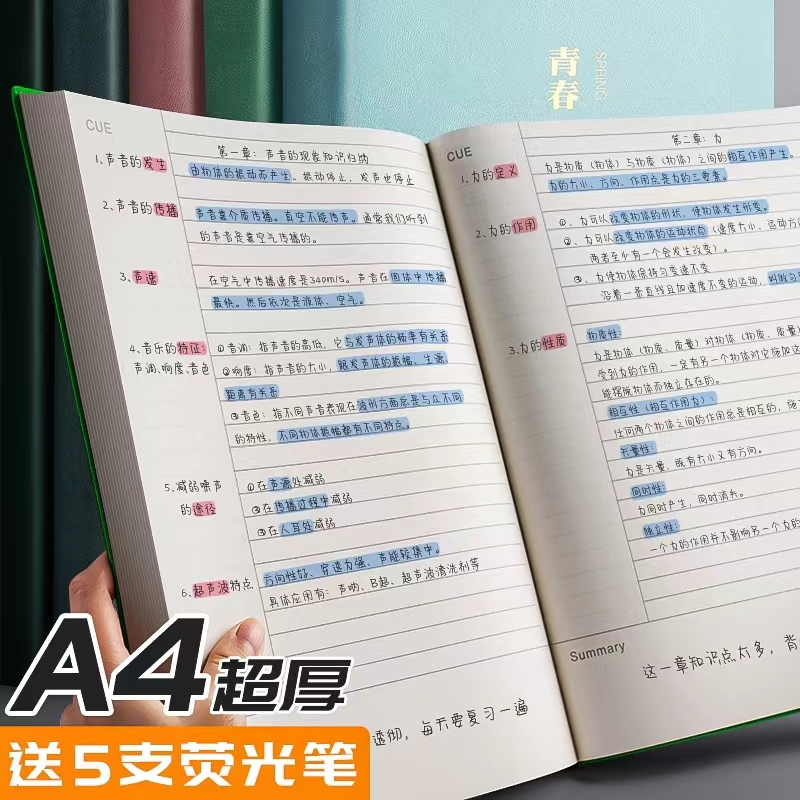 青春
SPRING
CUE
第一章：声音的现象知识归纳
1、声音的发生
由物体的振动而产生。振动停止，发声也停止
2、声音的传播
声音靠介质传播。真空不能传声。通常我们听到
的声音是靠空气传播的。
3、声速
在空气中传播速度是340m/s。声音在固体中传播
最快。然后依次是液体、空气。
4、音乐的特征：
声调、响度、音色
①音调：指声音的高低，它与发声体的频率有关系
②响度：指声音的大小，跟发声体的振幅、声源
距离有关系
③音色：指不同声音表现在波形方面总是与众不同
的特性，不同物体振幅都有不同特点。
5、减弱噪声
的途径
①在声源处减弱
②在传播过程中减弱
③在人耳处减弱
6、超声波特点
方向性好、穿透力强、声能较集中。
具体应用有：声呐、B超、超声波清洗剂等
透彻，每天要复习一遍
CUE
第二章：力
1.力的定义
力是物质（物体）与物质（物体）之间的相互作用产生。
力的大小、方向、作用点是力的三要素。
2、力的作用
①、力可以改变物体的形状，使物体发生形变。
②、力可以改变物体的运动状态（速度大小、运动方
两者至少有一个会发生改变）。
③、力使物体保持匀变速不变
沿着一条直线且加速度不变的运动，叫做匀
3、力的性质
物质性：
力是物体（物质、质量）对物体（物质、质量）
受到力的作用，一定有另一个物体对它施加这
能摆脱物体而独立存在的。
相互性（相互作用力）：
任何两个物体之间的作用总是相互的，施
矢量性：
力是矢量，既有大小又有方向。
同时性：
力同时产生，同时消失。
独立性：
一个力的作用并不影响另一个力的
Summary
这一章知识点太多，背
A4超厚
送5支荧光笔